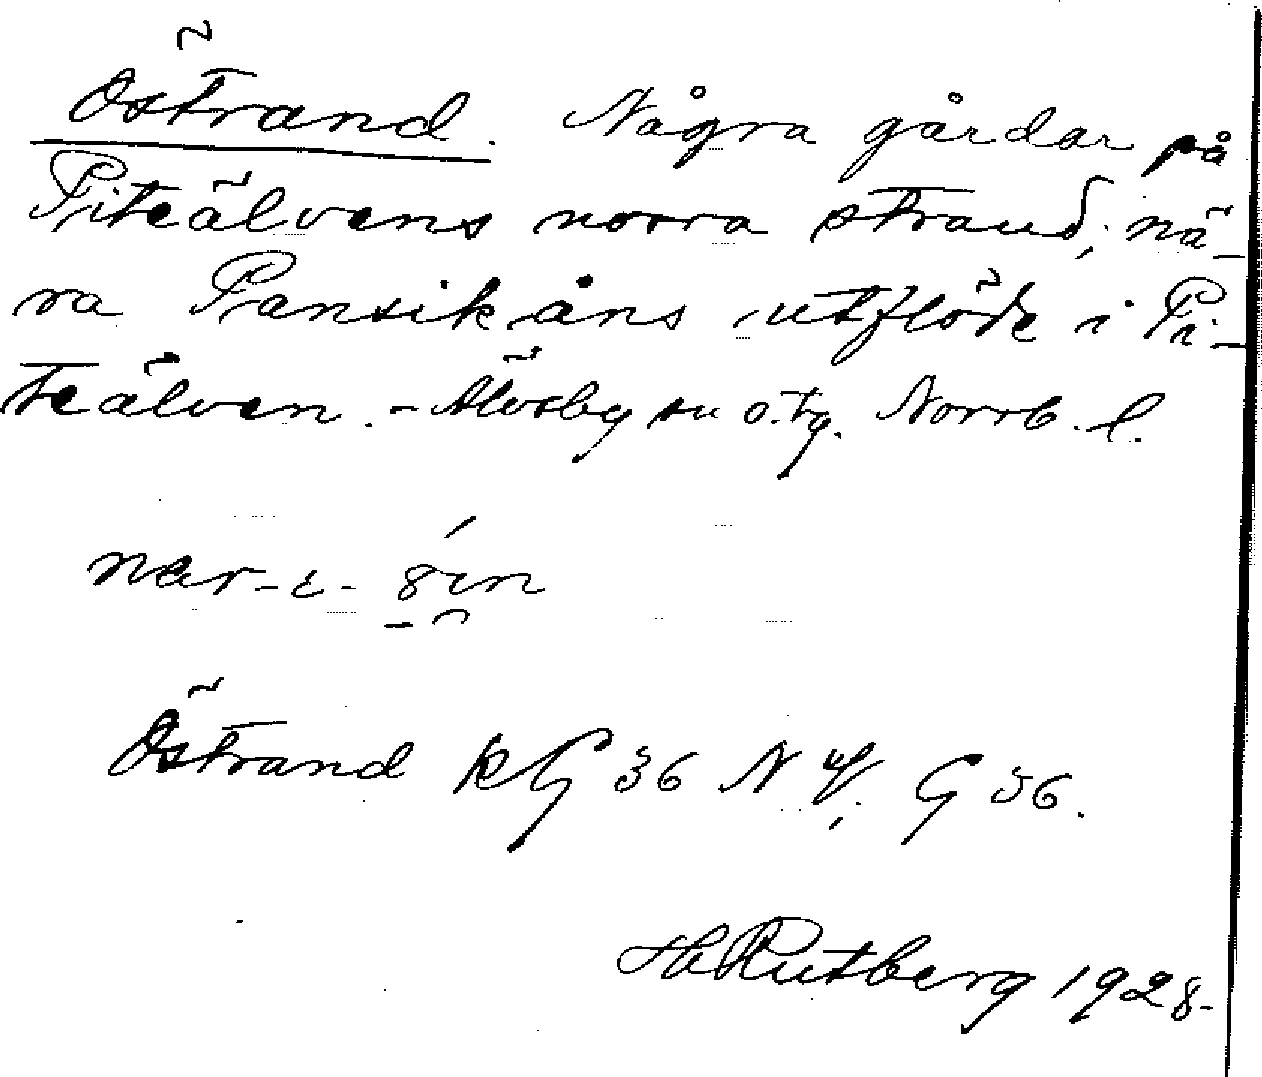 Östrand. Några gårdar på
Piteälvens norra strand, nä-
ra Pansikåns utflöde i Pi-
teälven. - Älvsby sn o. tg. Norrb. l.
Östrand kG 36 NV; G 56.
H Rutberg 1928.